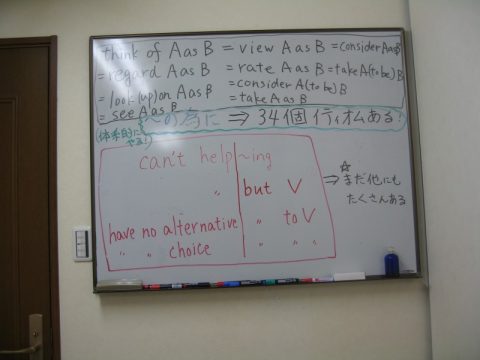 think of A as B = view A as B = consider A as B
= regard A as B = rate A as B = take A (to be) B
= look (up) on A as B = consider A (to be) B
= see A as B = take A as B
(体系的に
やる!)
〜の為に ⇒ 34個 イディオムある!
can't help 〜ing
〃 but V
have no alternative 〃 to V
〃 〃 choice 〃 〃 〃
☆
⇒ まだ他にも
たくさんある